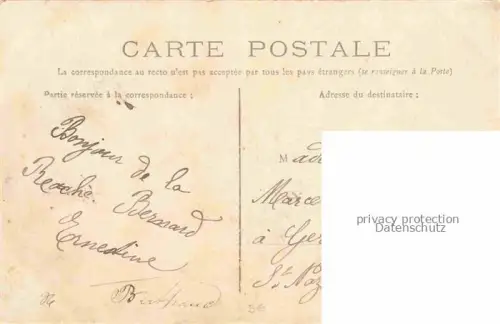 CARTE POSTALE
La correspondance au recto n'est pas acceptée par tous les pays étrangers (se renseigner à la Poste)
Partie réservée à la correspondance :
Adresse du destinataire :
Bonjour de la
Bernard
Ernestine
Marce
à Ger
St Naz
privacy protection
Datenschutz